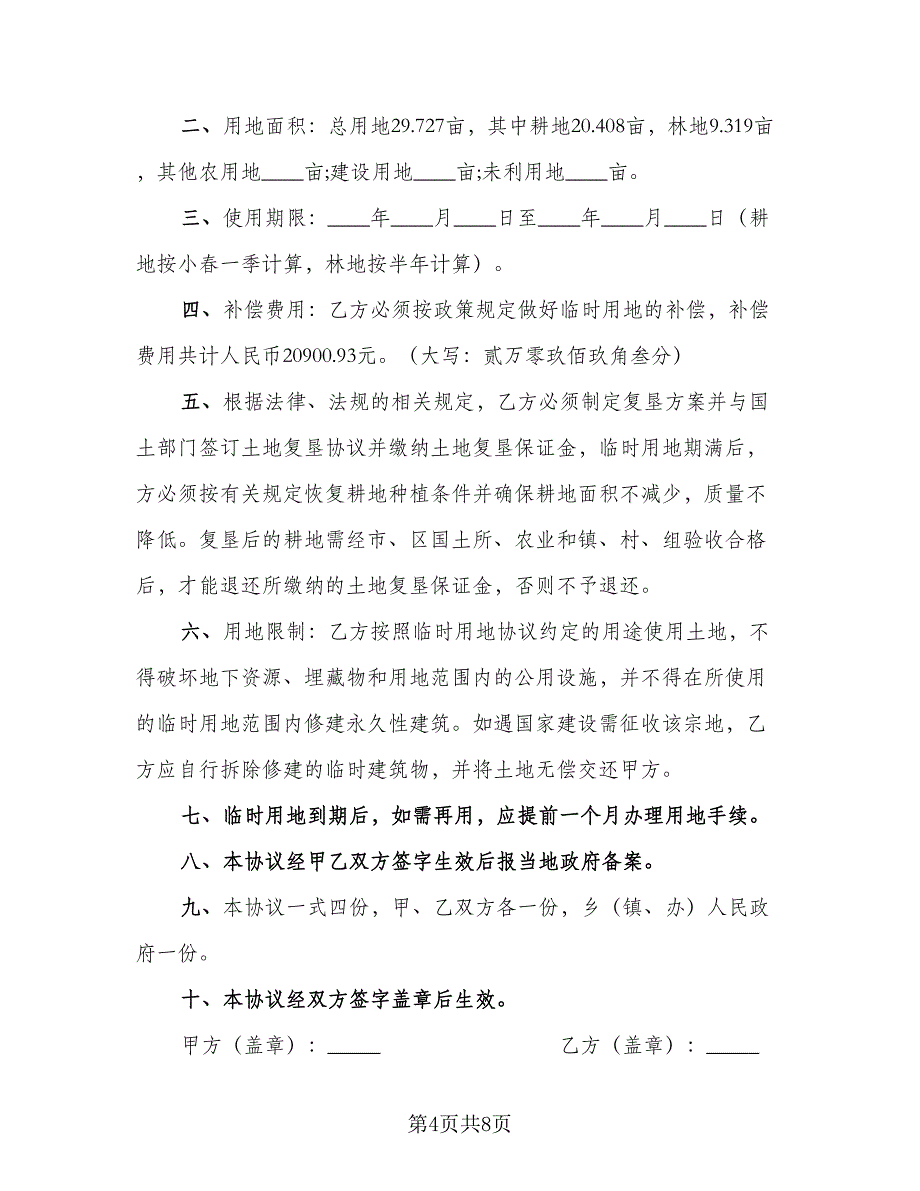 二、用地面积：总用地29.727亩，其中耕地20.408亩，林地9.319亩
，其他农用地____亩;建设用地____亩;未利用地____亩。
三、使用期限：____年____月____日至____年____月____日（耕
地按小春一季计算，林地按半年计算）。
四、补偿费用：乙方必须按政策规定做好临时用地的补偿，补偿
费用共计人民币20900.93元。（大写：贰万零玖佰玖角叁分）
五、根据法律、法规的相关规定，乙方必须制定复垦方案并与国
土部门签订土地复垦协议并缴纳土地复垦保证金，临时用地期满后，
方必须按有关规定恢复耕地种植条件并确保耕地面积不减少，质量不
降低。复垦后的耕地需经市、区国土所、农业和镇、村、组验收合格
后，才能退还所缴纳的土地复垦保证金，否则不予退还。
六、用地限制：乙方按照临时用地协议约定的用途使用土地，不
得破坏地下资源、埋藏物和用地范围内的公用设施，并不得在所使用
的临时用地范围内修建永久性建筑。如遇国家建设需征收该宗地，乙
方应自行拆除修建的临时建筑物，并将土地无偿交还甲方。
七、临时用地到期后，如需再用，应提前一个月办理用地手续。
八、本协议经甲乙双方签字生效后报当地政府备案。
九、本协议一式四份，甲、乙双方各一份，乡（镇、办）人民政
府一份。
十、本协议经双方签字盖章后生效。
甲方（盖章）：_____ 乙方（盖章）：_____
第4页共8页